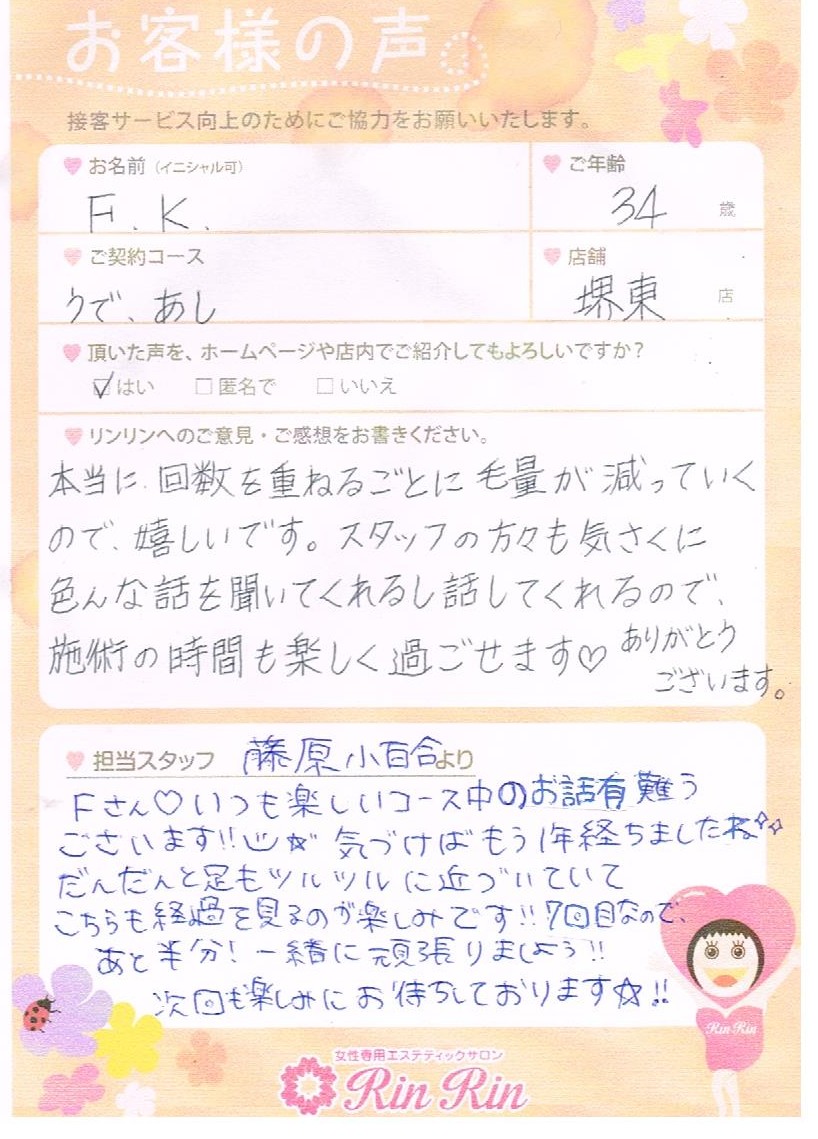 お客様の声
接客サービス向上のためにご協力をお願いいたします。
お名前（イニシャル可）
F.K.
ご年齢
34 歳
ご契約コース
うで、あし
店舗
堺東 店
頂いた声を、ホームページや店内でご紹介してもよろしいですか？
☑はい □匿名で □いいえ
リンリンへのご意見・ご感想をお書きください。
本当に回数を重ねるごとに毛量が減っていく
ので、嬉しいです。スタッフの方々も気さくに
色んな話を聞いてくれるし話してくれるので、
施術の時間も楽しく過ごせます♡ありがとう
ございます。
担当スタッフ 藤原小百合より
Fさん♡いつも楽しいコース中のお話有難う
ございます!!☆気づけばもう1年経ちましたね
だんだんと足もツルツルに近づいていて
こちらも経過を見るのが楽しみです!!7回目なので、
あと半分!一緒に頑張りましょう!!
次回も楽しみにお待ちしております☆!!
Rin Rin
女性専用エステティックサロン
Rin Rin